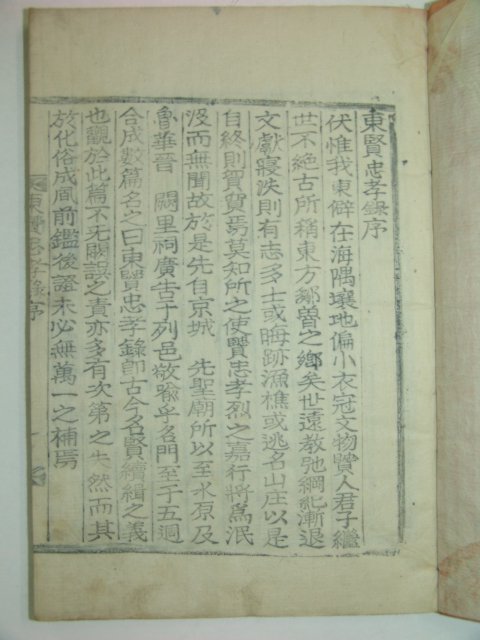 東賢忠孝錄序
伏惟我東僻在海隅壤地偏小衣冠文物賢人君子繼
世不絶古所稱東方鄒魯之鄕矣世遠教弛綱紀漸退
文獻寢泆則有志多士或晦跡漁樵或逃名山庄以是
自終則賀賀焉莫知所之使賢忠孝烈之嘉行將爲泯
沒而無聞故於是先自京城 先聖廟所以至水原及
魯華晉 闕里祠廣告于列邑敬喩乎名門至于五週
合成數篇名之曰東賢忠孝錄卽古今名賢續緝之義
也觀於此篇不死闕誤之責亦多有次第之失然而其
於化俗成風前鑑後證未必無萬一之補焉
東賢忠孝錄序